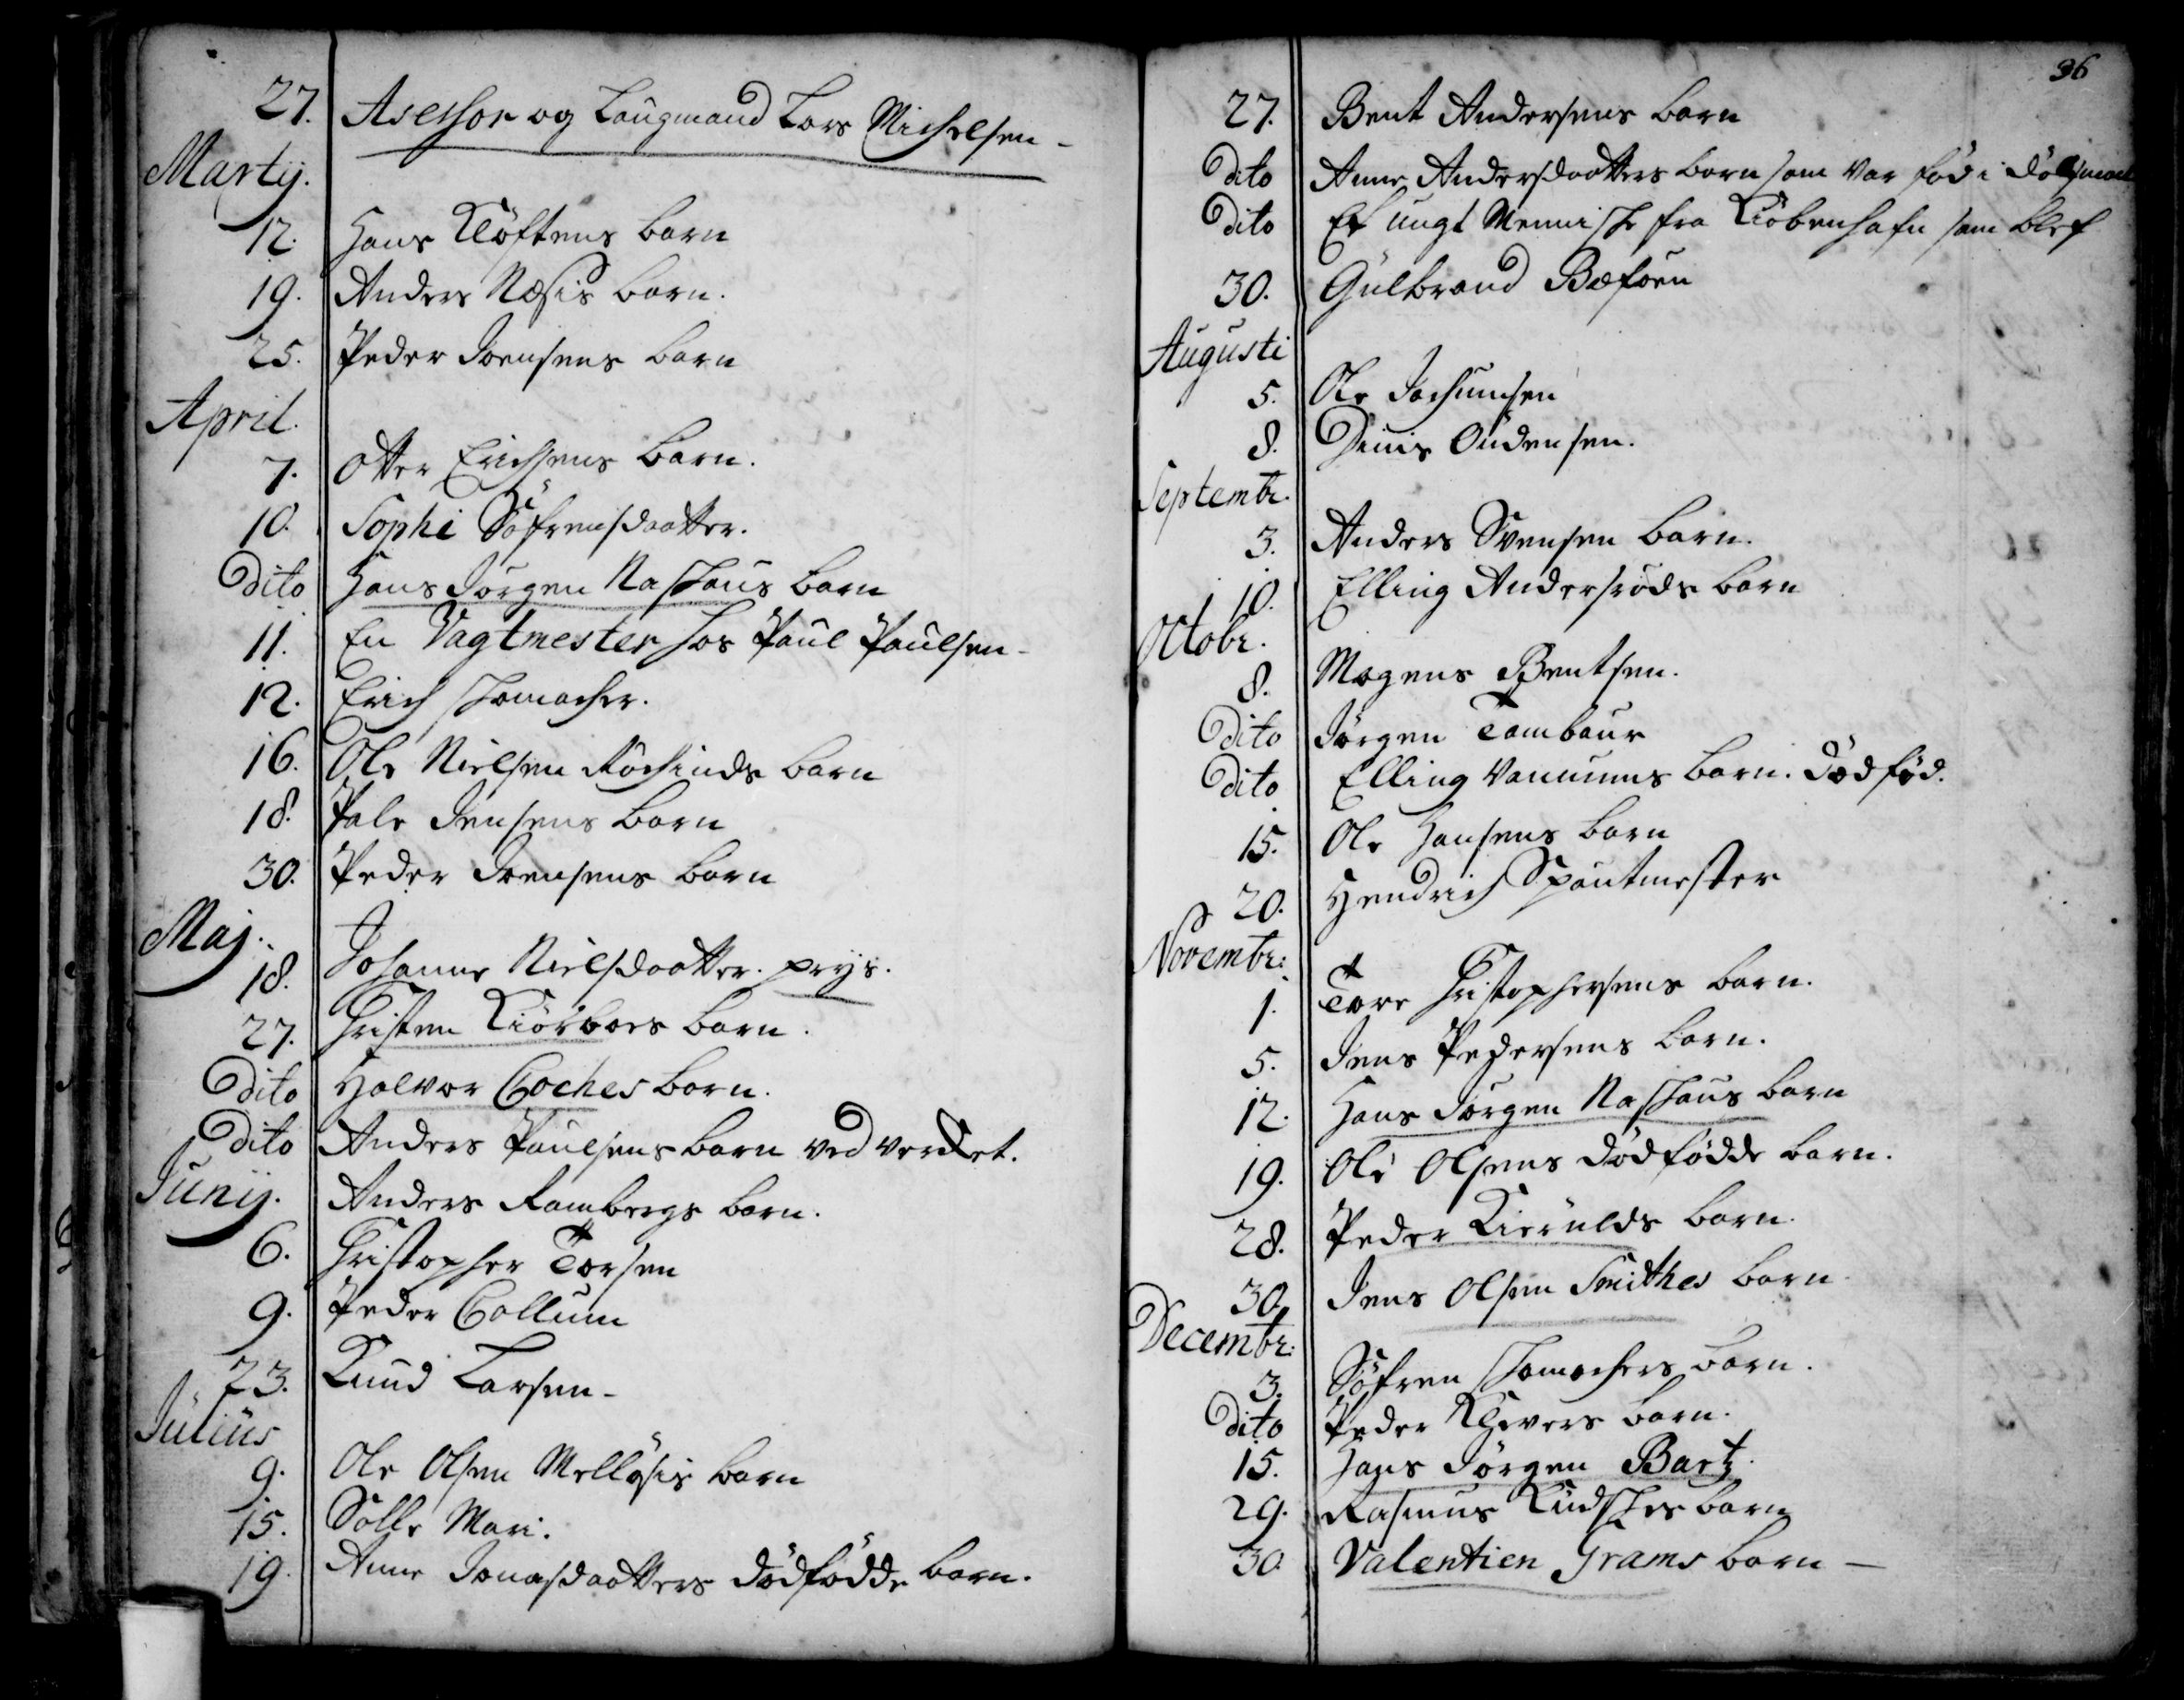 27. Asessor og Laugmand Lars Michelsen -
Martij.
12. Hans Kløftens barn
19. Anders Næsis barn.
25. Peder Joensens barn
April.
7. Otter Erichsens barn.
10. Sophi Söfrensdaatter.
Dito Hans Jörgen Naschaus barn
11. En Vagtmester hos Paul Paulsen -
12. Erich Skomacher.
16. Ole Nielsen barn
18. Pale Jensens barn
30. Peder Joensens barn
Maj.
18. Johanne Nielsdaatter. prys.
27. Christen Kiörboes barn.
Dito Halvor Coches barn.
Dito Anders Paulsens barn ved Verchet.
Junij. Anders Rambergs barn.
6. Christopher Torsen
9. Peder Collum
23. Knud Larsen -
Julius
9. Ole Olsen Mellösis barn
15. Mari.
19. Anne Jonasdaatters dödfödde barn.
36
27. Bent Andersens barn
Dito Anne Andersdaatters barn som var fød i dölgsmaal
Dito Et ungt Menniske fra Kiöbenhafn som blef
30. Gulbrand
Augusti
5. Ole Jochumsen
8. Oudensen.
Septembr.
3. Anders Svensen barn.
10. Elling Andersröds barn
Octobr.
8. Mogens Bentsen.
Dito Jörgen Tambour
Dito Elling Vanuums barn. dødfød.
15. Ole Hansens barn
20. Hendrich Spautmester
Novembr:
1. Tore Christophersens barn.
5. Jens Pedersens barn.
12. Hans Jörgen Naschaus barn
19. Ole Olsens dödfödde barn.
28. Peder Kierulds barn.
30. Jens Olsen Smithes barn
Decembr:
3. Söfren Skomachers barn.
Dito Peder Klevers barn.
15. Hans Jörgen Bartz.
29. Rasmus Kudskes barn
30. Valentien Grams barn -